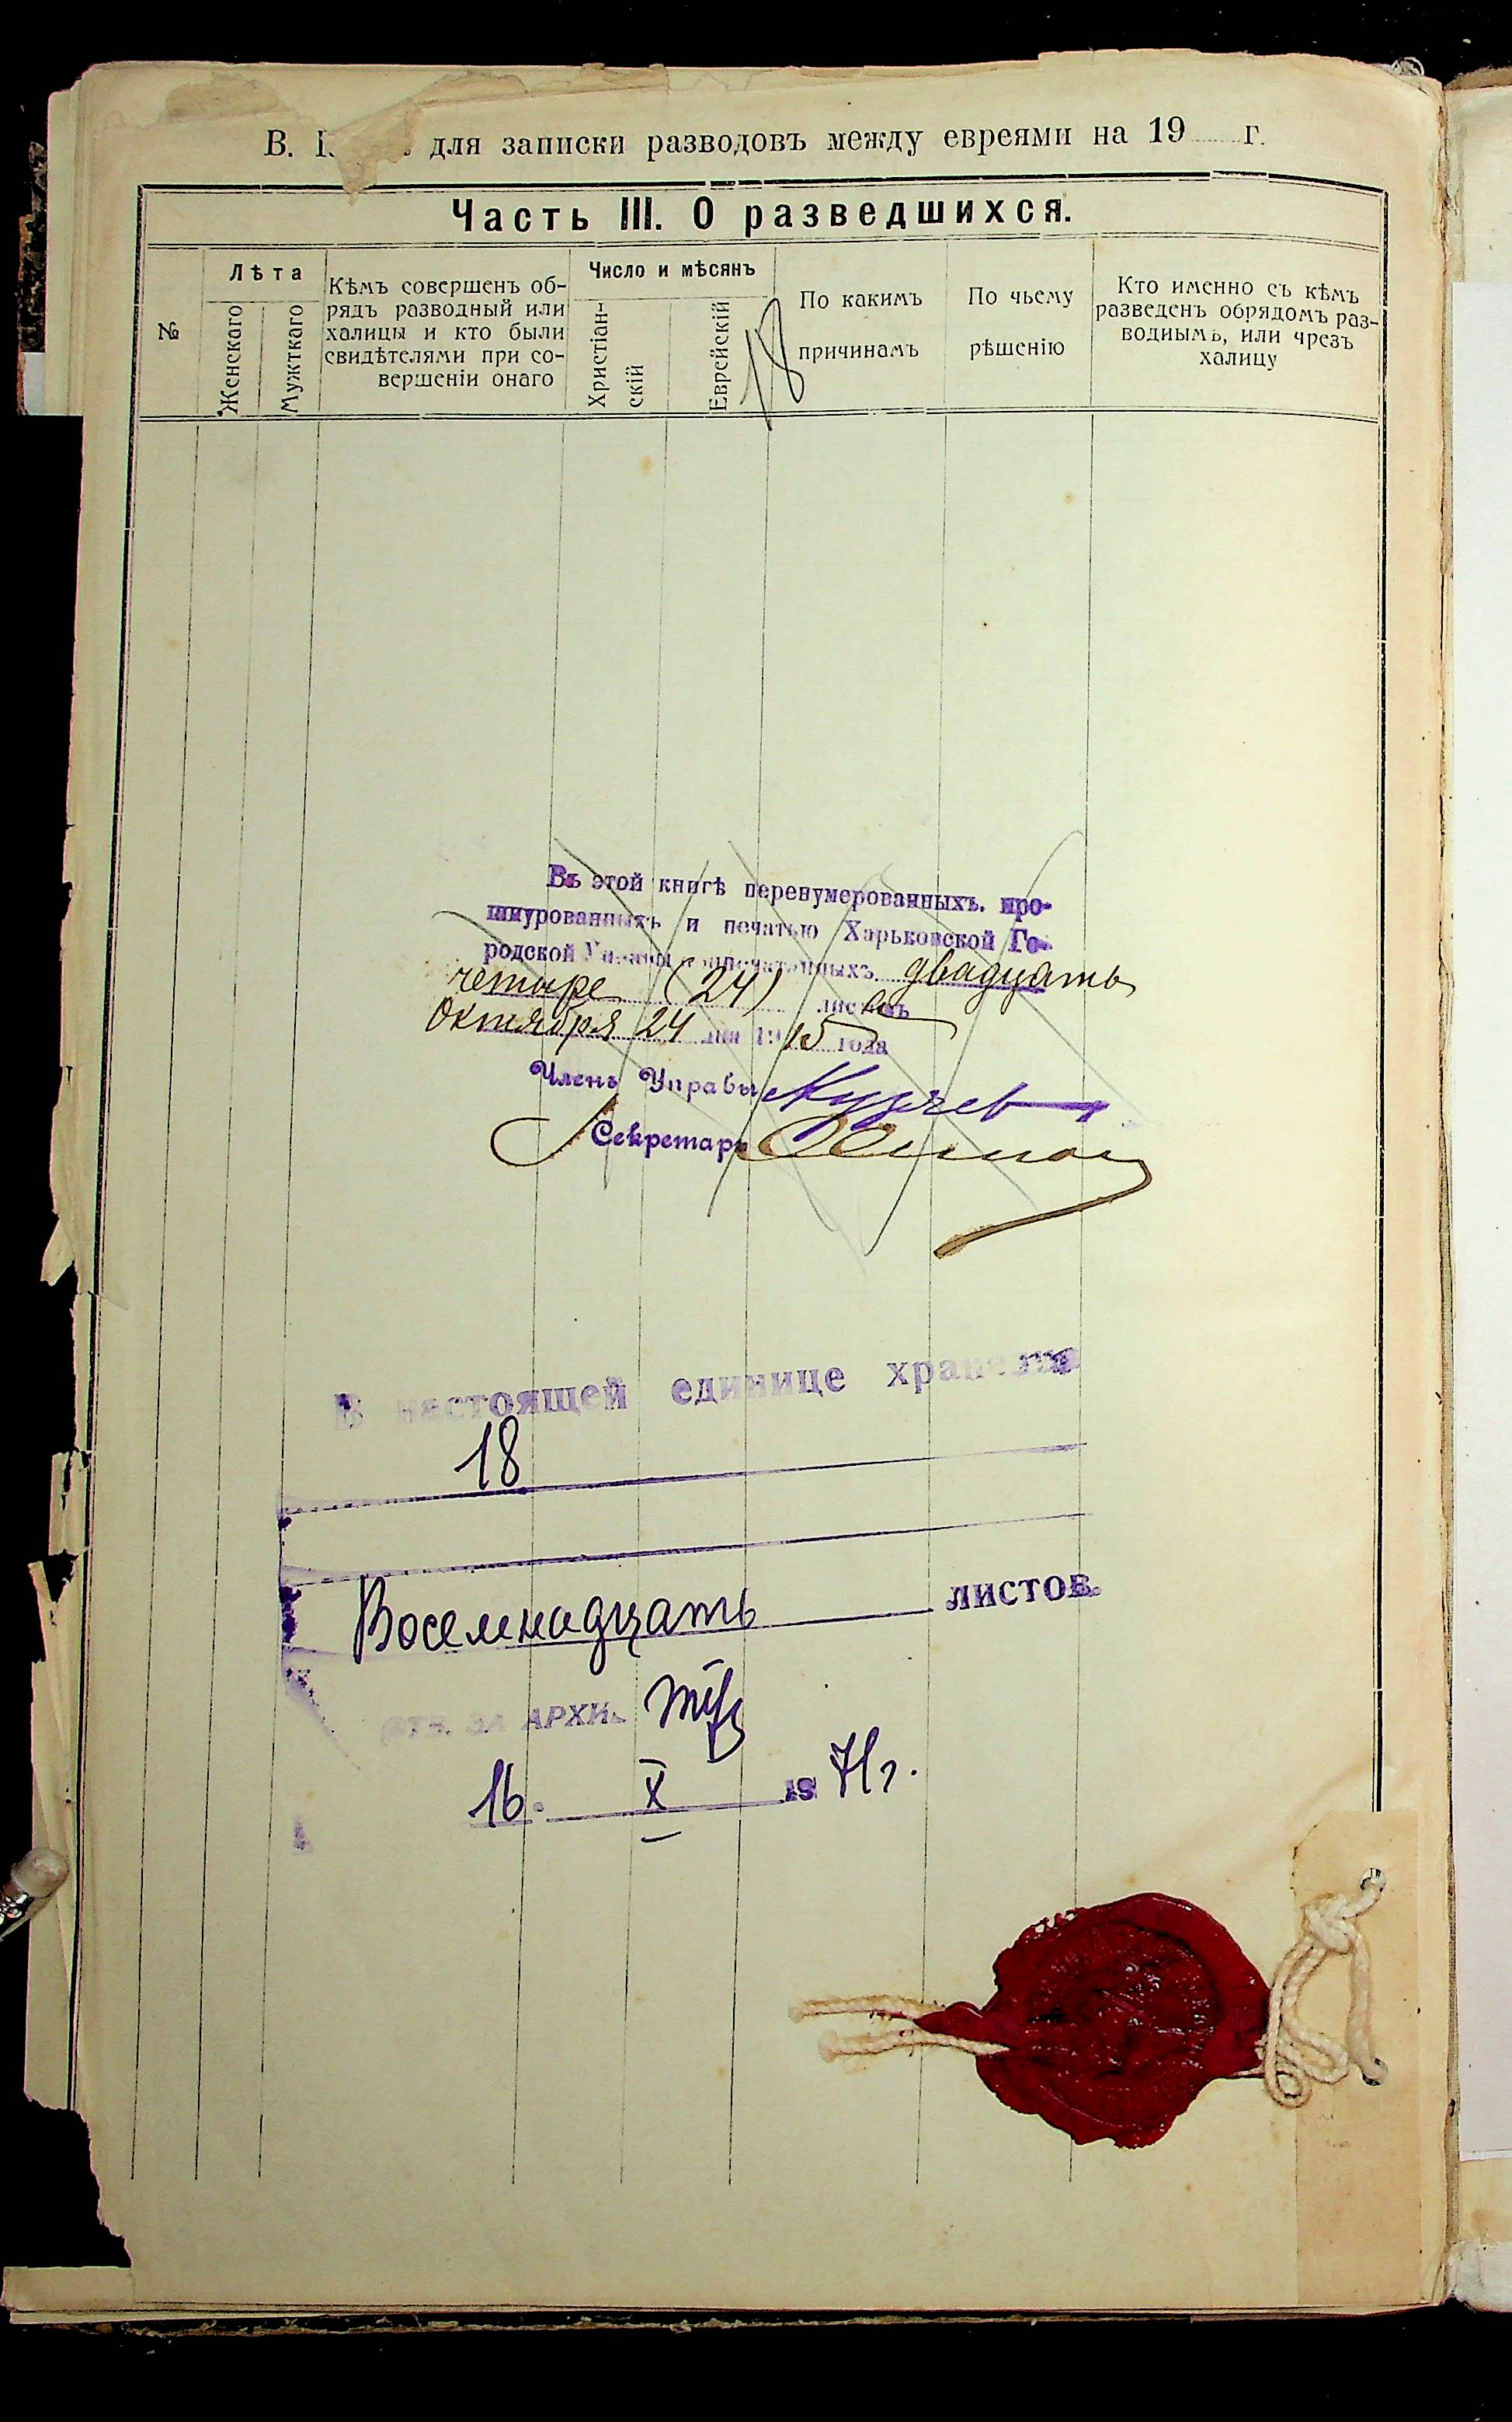 В. для записки разводовъ между евреями на 19 г.
Часть III. О разведшихся.
№
Лѣта
Женскаго
Мужткаго
Кѣмъ совершенъ об-
рядъ разводный или
халицы и кто были
свидѣтелями при со-
вершеніи онаго
Число и мѣсянъ
Христіан-
скій
Еврейскій
18
По какимъ
причинамъ
По чьему
рѣшенію
Кто именно съ кѣмъ
разведенъ обрядомъ раз-
воднымъ, или чрезъ
халицу
Въ этой книгѣ перенумерованныхъ. про-
шнурованныхъ и печатью Харьковской Го-
родской Управы припечатанныхъ двадцать
четыре (24) листовъ
Октября 24 дня 1915 года
Членъ Управы
Секретарь
В настоящей единице хранения
18
Восемнадцать листов.
ОТВ. ЗА АРХИВ
16. X 19 71 г.